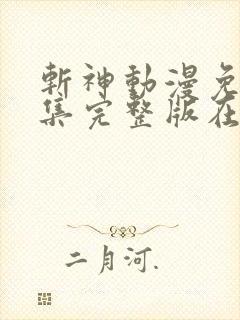 斬神動漫免
集完整版在
二月河.